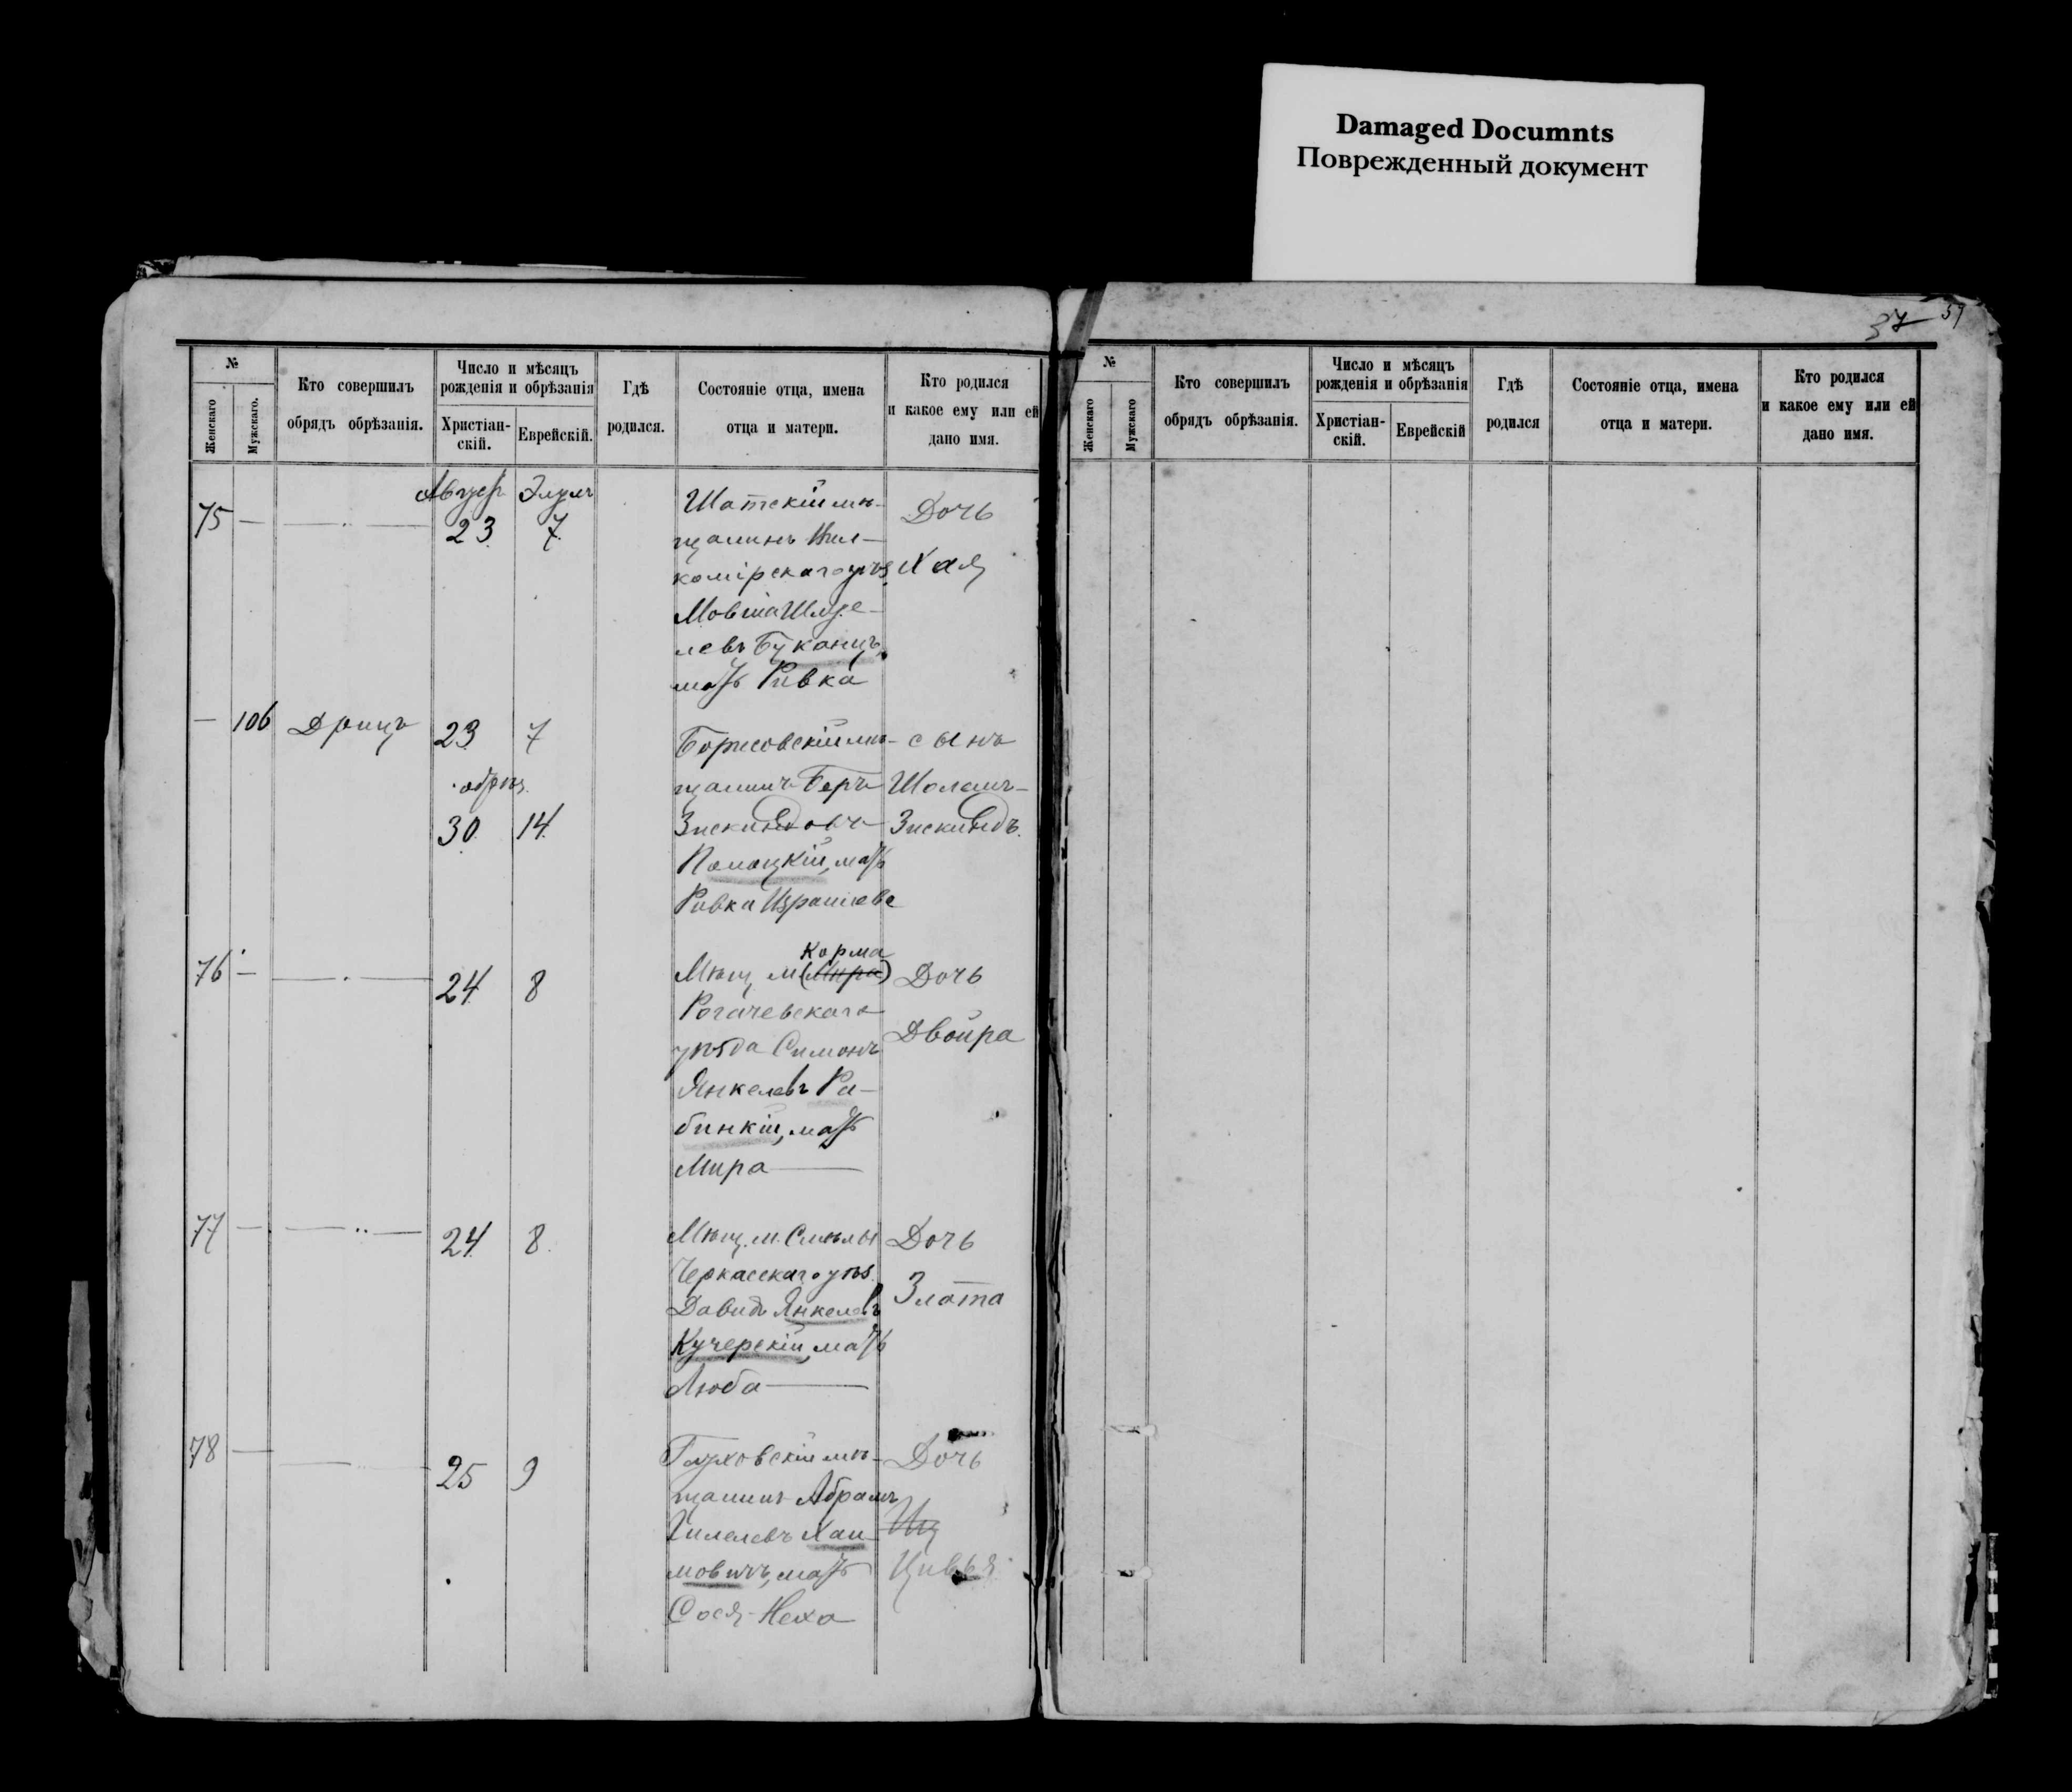 Damaged Documnts
Поврежденный документ
№
Женскаго
Мужскаго.
Кто совершилъ
обрядъ обрѣзанія.
Число и мѣсяцъ
рожденія и обрѣзанія
Христіан-
скій.
Еврейскій.
Гдѣ
родился.
Состояніе отца, имена
отца и матери.
Кто родился
и какое ему или ей
дано имя.
Элулъ
75 — 23 7
Шатскій мѣ-
щанинъ Вил-
комірскаго уѣз.
Мовша
левъ Буканцъ,
мать Ривка
Дочь
Хая
— 106 23 7
обрѣз.
30 14
Борисовскій мѣ-
щанинъ Беръ
Зискиндовъ
Полоцкій, мать
Ривка Израилева
сынъ
Шоломъ-
Зискиндъ.
76 — 24 8
Корма
Мѣщ. м. (Мира)
Рогачевскаго
уѣзда Симонъ
Янкелевъ Ра-
бинкій, мать
Мира —
Дочь
Двойра
77 — 24 8
Мѣщ. м. Смѣлы
Черкасскаго уѣз.
Давидъ Янкелевъ
Кучерскій, мать
Люба —
Дочь
Злата
78 — 25 9
Глуховскій мѣ-
щанинъ Абрамъ
Гилелевъ Хаи-
мовичъ, мать
Сося-Неха
Дочь
Цивья
37 59
№
Женскаго
Мужскаго
Кто совершилъ
обрядъ обрѣзанія.
Число и мѣсяцъ
рожденія и обрѣзанія
Христіан-
скій.
Еврейскій
Гдѣ
родился
Состояніе отца, имена
отца и матери.
Кто родился
и какое ему или ей
дано имя.